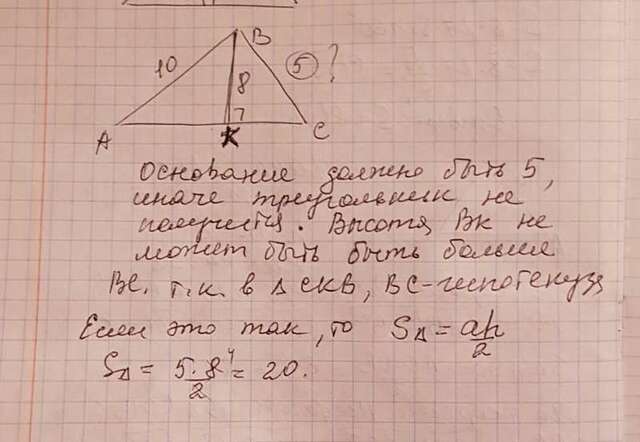 B
10
5 ?
8
A
K
C
Основание должно быть 5,
иначе треугольник не
получится. Высота BK не
может быть быть больше
BC. т.к. в Δ CKB, BC-гипотенуза
Если это так, то SΔ = ah/2
SΔ = 5·8⁴/2 = 20.